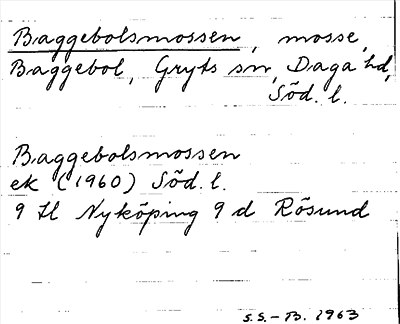 Baggebolsmossen, mosse,
Baggebol, Gryts sn, Daga hd,
Söd. l.
Baggebolsmossen
ek (1960) Söd. l.
9 H Nyköping 9 d Rösund
S.S.-B. 1963